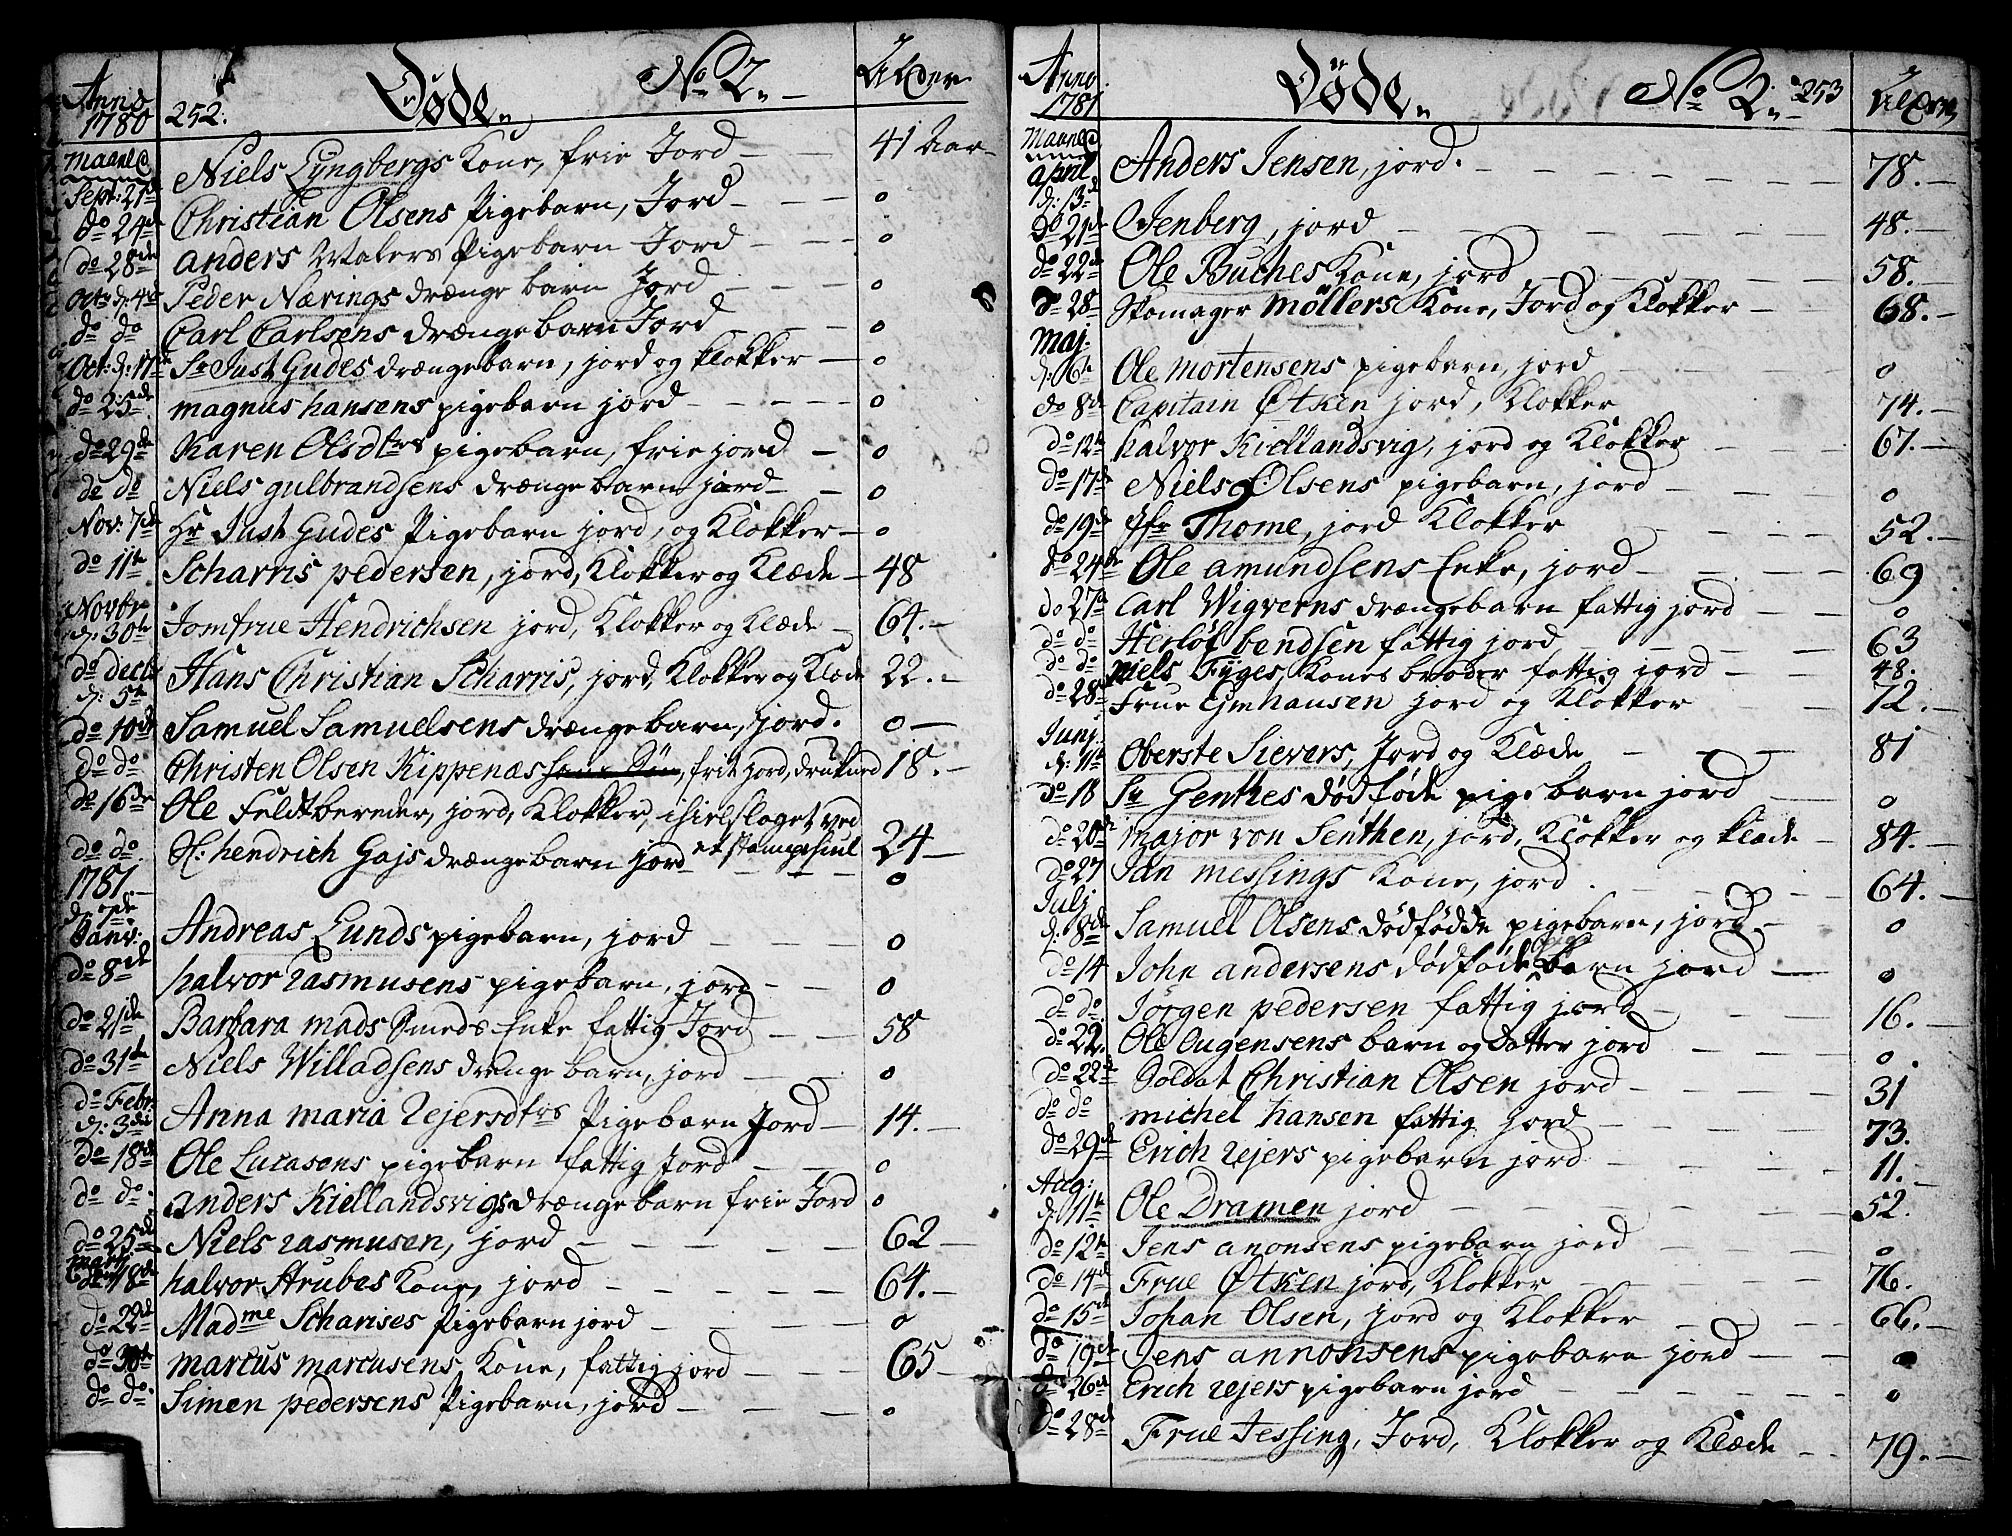 Anno 1780 252. Døde. No 2. Alder
Maaned
Sept: 21de Niels Lyngbergs Kone, frie Jord 41 Aar
do 24de Christian Olsens Pigebarn, Jord 0
do 28de anders Malers Pigebarn Jord 0
Octr d: 4de Peder Nærings drænge barn Jord 0
do do Carl Carlsens drængebarn Jord 0
Oct: d: 17de Sr Just Gudes drængebarn, jord og klokker 0
do 25de magnus hansens pigebarn jord 0
do 29de Karen Olsdtrs pigebarn, frie jord 0
do do Niels gulbrandsens drænge barn jord 0
Nov: 7de Hr Just Gudes Pigebarn jord, og Klokker 0
do 11te Scharris pedersen, jord, Klokker og Klæde 48
Novbr d: 30te Jomfrue Hendrichsen jord, Klokker og Klæde 64.
do decbr d: 5te Hans Christian Scharris, jord, Klokker og Klæde 22.
do 10de Samuel Samuelsens drængebarn, jord. 0
do do Christen Olsen Kippenæs, frit jord, drukned 18.
do 16de Ole Feldtbereder, jord, Klokker, ihielslaget ved et stampehiul 24
do do H: hendrich Gajs drængebarn jord 0
1781
d: 7de Janv: Andreas Lunds pigebarn, jord 0
do 8de halvor rasmusens pigebarn, jord 0
do 21de Barbara mads Smeds Enke fattig Jord 58
do 31te Niels Willadsens drænge barn, jord 0
do Febr. d: 3die Anna maria Rejersdtrs Pigebarn Jord 14.
do 18de Ole Lucasens pigebarn fattig Jord 0
do do anders Kiellandsvigs drængebarn frie Jord 0
do 25de Niels rasmusen, jord 62
18de halvor Strubes Kone, jord 64.
do 22de Madme Scharises Pigebarn jord 0
do 30te marcus marcusens Kone, fattig jord 65
do do Simen pedersens Pigebarn, jord 0
Anno 1781 Døde. No 2. 253 Alder
Maaned
april d: 13de Anders Jensen, jord. 78.
do 21de Jenberg, jord 48.
do 22de Ole Buches Kone, jord 58.
do 28de Skomager Møllers Kone, Jord og Klokker 68.
Maj.
d: 6te Ole mortensens pigebarn, jord 0
do 8de Capitain Øtken jord, Klokker 74.
do 12te halvor Kiellandsvig, jord og Klokker 67.
do 17de Niels Olsens pigebarn, jord 0
do 19de Thome, jord Klokker 52.
do 24de Ole amundsens Enke, jord 69
do 27de Carl Wigverns drængebarn fattig jord 0
do do Herlof bendsen fattig jord 63
do do niels Fyges Kones broder fattig jord 48.
do 28de Frue Ejmhausen jord og Klokker 72.
Junj.
d: 11te Oberste Sievers, Jord og Klæde 81
do 18 Sr Genthes dødføde pige barn jord 0
do 20de major von Senthen, jord, Klokker og klæde 84.
do 27 Jan messings Kone, jord 64.
Julj
d: 8de Samuel Olsens dødfødde pigebarn, jord 0
do 14 John andersens dødføde barn jord 0
do do Jørgen pedersen fattig jord 16.
do 22. Ole Eugensens barn og datter jord 0
do 22de Soldat Christian Olsen jord 31
do do michel hansen fattig jord 73.
do 29de Erich rejers pigebarn jord 11.
Aug:
d: 11te Ole Dramen jord 52.
do 12te Jens anonsens pigebarn jord 0
do 14de Frue Øtken jord, Klokker 76.
do 15de Johan Olsen, jord og Klokker 66.
do 19de Jens annonsens pigebarn jord 0
do 26de Erich rejers pigebarn jord 0
do 28de Frue Jessing, Jord, Klokker og Klæde 79.